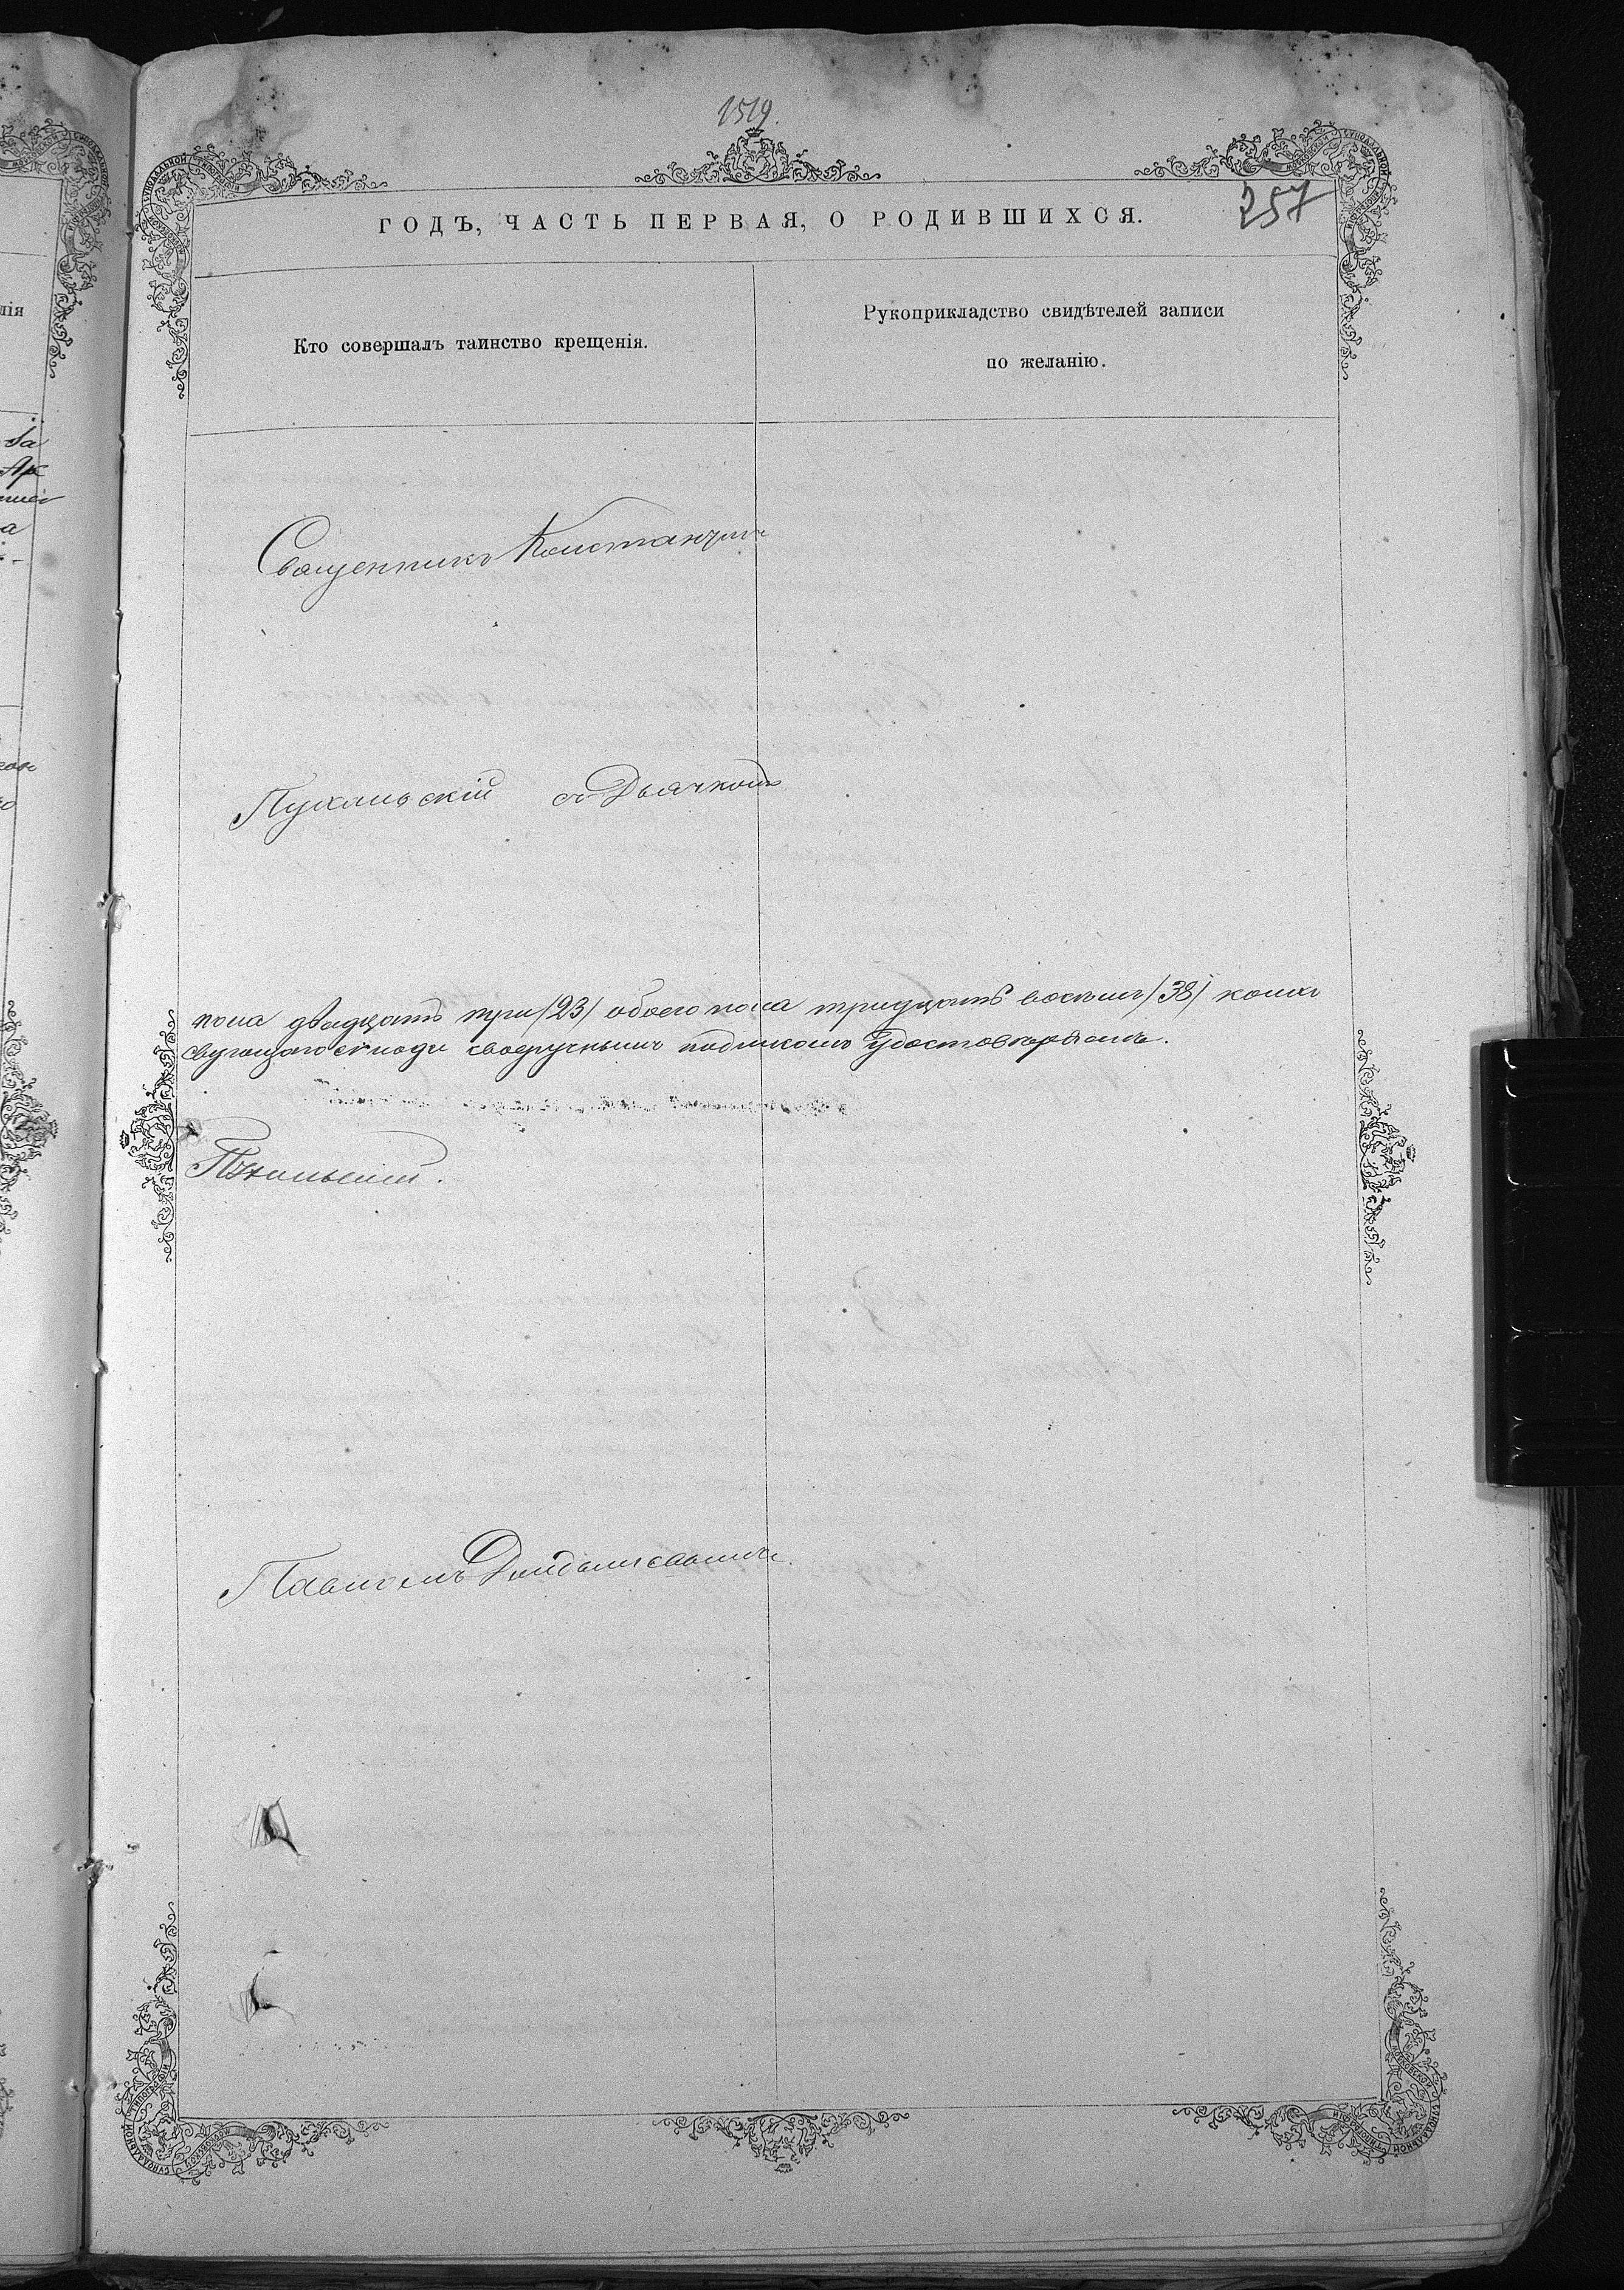 1519.
257
ГОДЪ, ЧАСТЬ ПЕРВАЯ, О РОДИВШИХСЯ.
Кто совершалъ таинство крещенія.
Рукоприкладство свидѣтелей записи
по желанію.
Священникъ Константинъ
Пухальскій съ Дьячкомъ
пола двадцать три /23/ обоего пола тридцать восемь /38/ коихъ
подписомъ удостовѣряемъ.
Пухальскій.
Павломъ